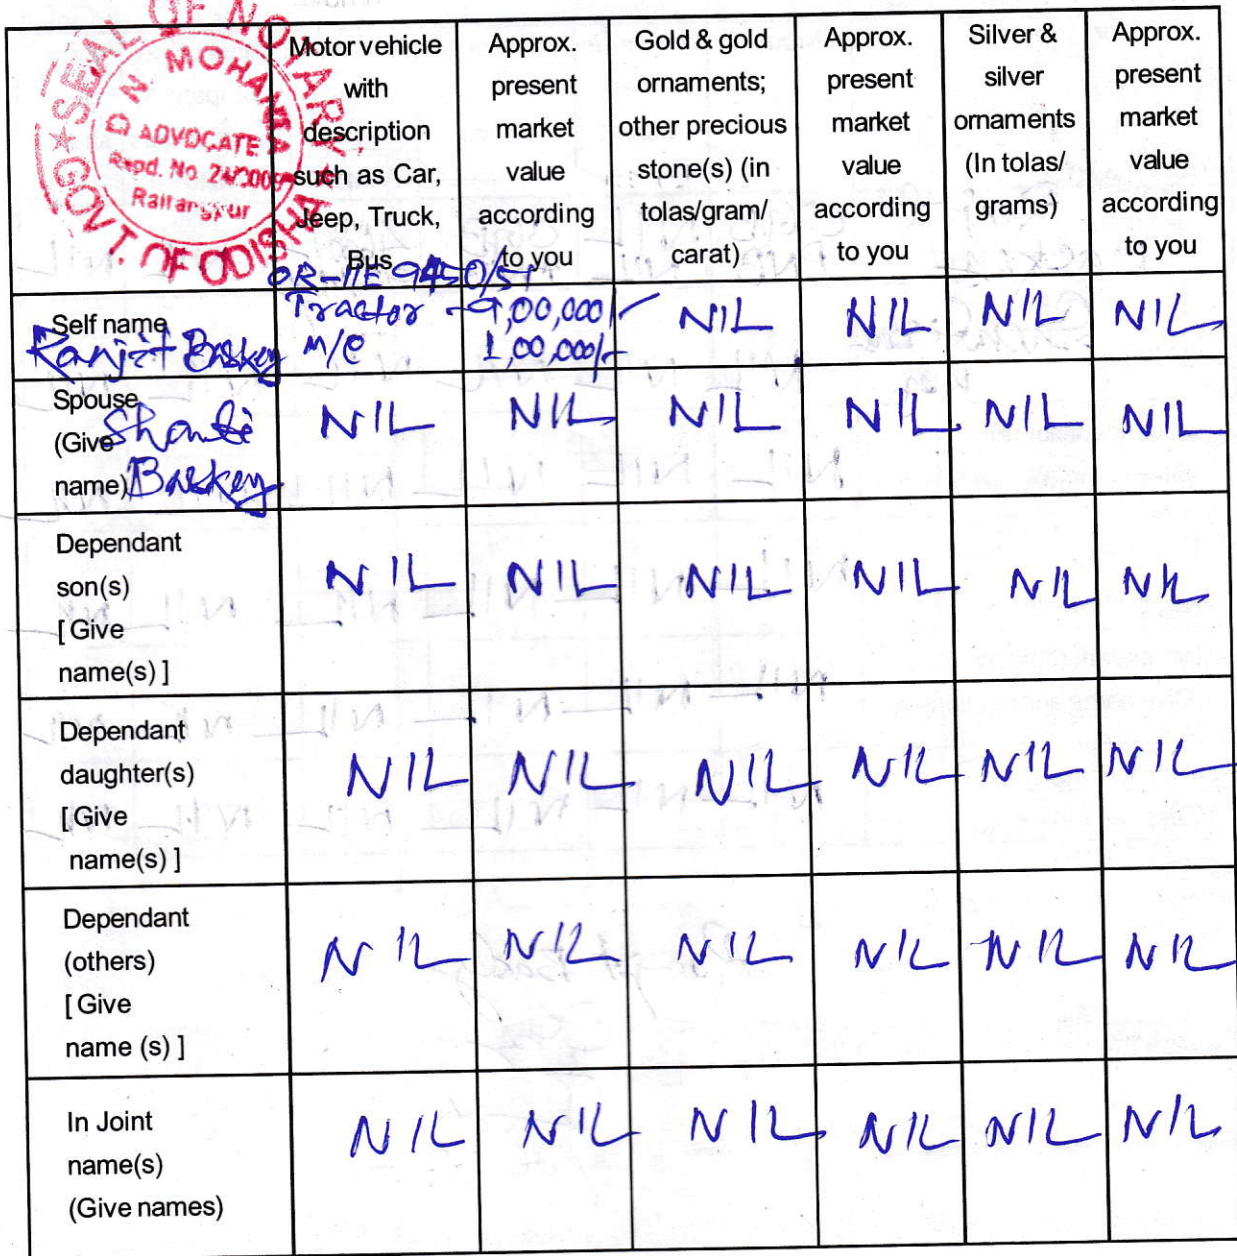 SEAL OF NOTARY
GOVT. OF ODISHA
D. N. MOHANTA
ADVOCATE
Regd. No.
Rairangpur
Motor vehicle with description such as Car, Jeep, Truck, Bus
Approx. present market value according to you
Gold & gold ornaments; other precious stone(s) (in tolas/gram/ carat)
Approx. present market value according to you
Silver & silver ornaments (In tolas/ grams)
Approx. present market value according to you
Self name Ranjit Baskey
OR-11E 9450/51
Tractor - 9,00,000/-
M/C 1,00,000/-
NIL NIL NIL NIL
Spouse (Give name) Shanti Baskey
NIL NIL NIL NIL NIL NIL
Dependant son(s) [ Give name(s) ]
NIL NIL NIL NIL NIL NIL
Dependant daughter(s) [Give name(s) ]
NIL NIL NIL NIL NIL NIL
Dependant (others) [ Give name (s) ]
NIL NIL NIL NIL NIL NIL
In Joint name(s) (Give names)
NIL NIL NIL NIL NIL NIL